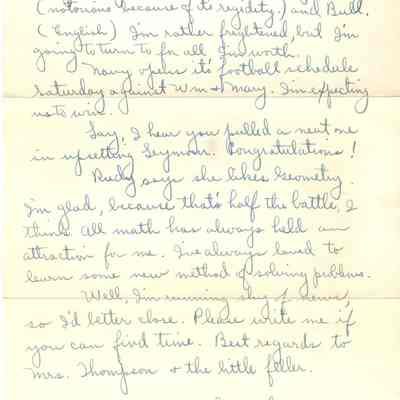 (notorious because of its regidity.) and Bull.
(English) I'm rather freightened, but I'm
going to turn to for all I'm worth.
Navy opens it's football schedule
Saturday against Wm + Mary. I'm expecting
us to win.
Say, I hear you pulled a neat one
in upsetting Seymour. Congratulations!
Rudy says she likes Geometry.
I'm glad, because that's half the battle, I
think. All math has always held an
attraction for me. I've always loved to
learn some new method of solving problems.
Well, I'm running shy of news,
so I'd better close. Please write me if
you can find time. Best regards to
Mrs. Thompson + the little feller.